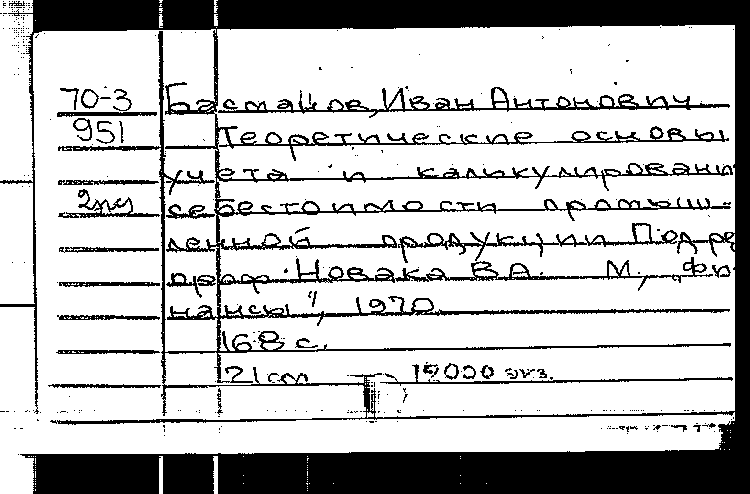 70-3 Басманов, Иван Антонович.
951 Теоретические основы
учета и калькулировани
2экз себестоимости промыш-
ленной продукции Под ре
проф. Новака В.А. М., „Фи-
нансы", 1970.
168 с.
21 cm 12000 экз.